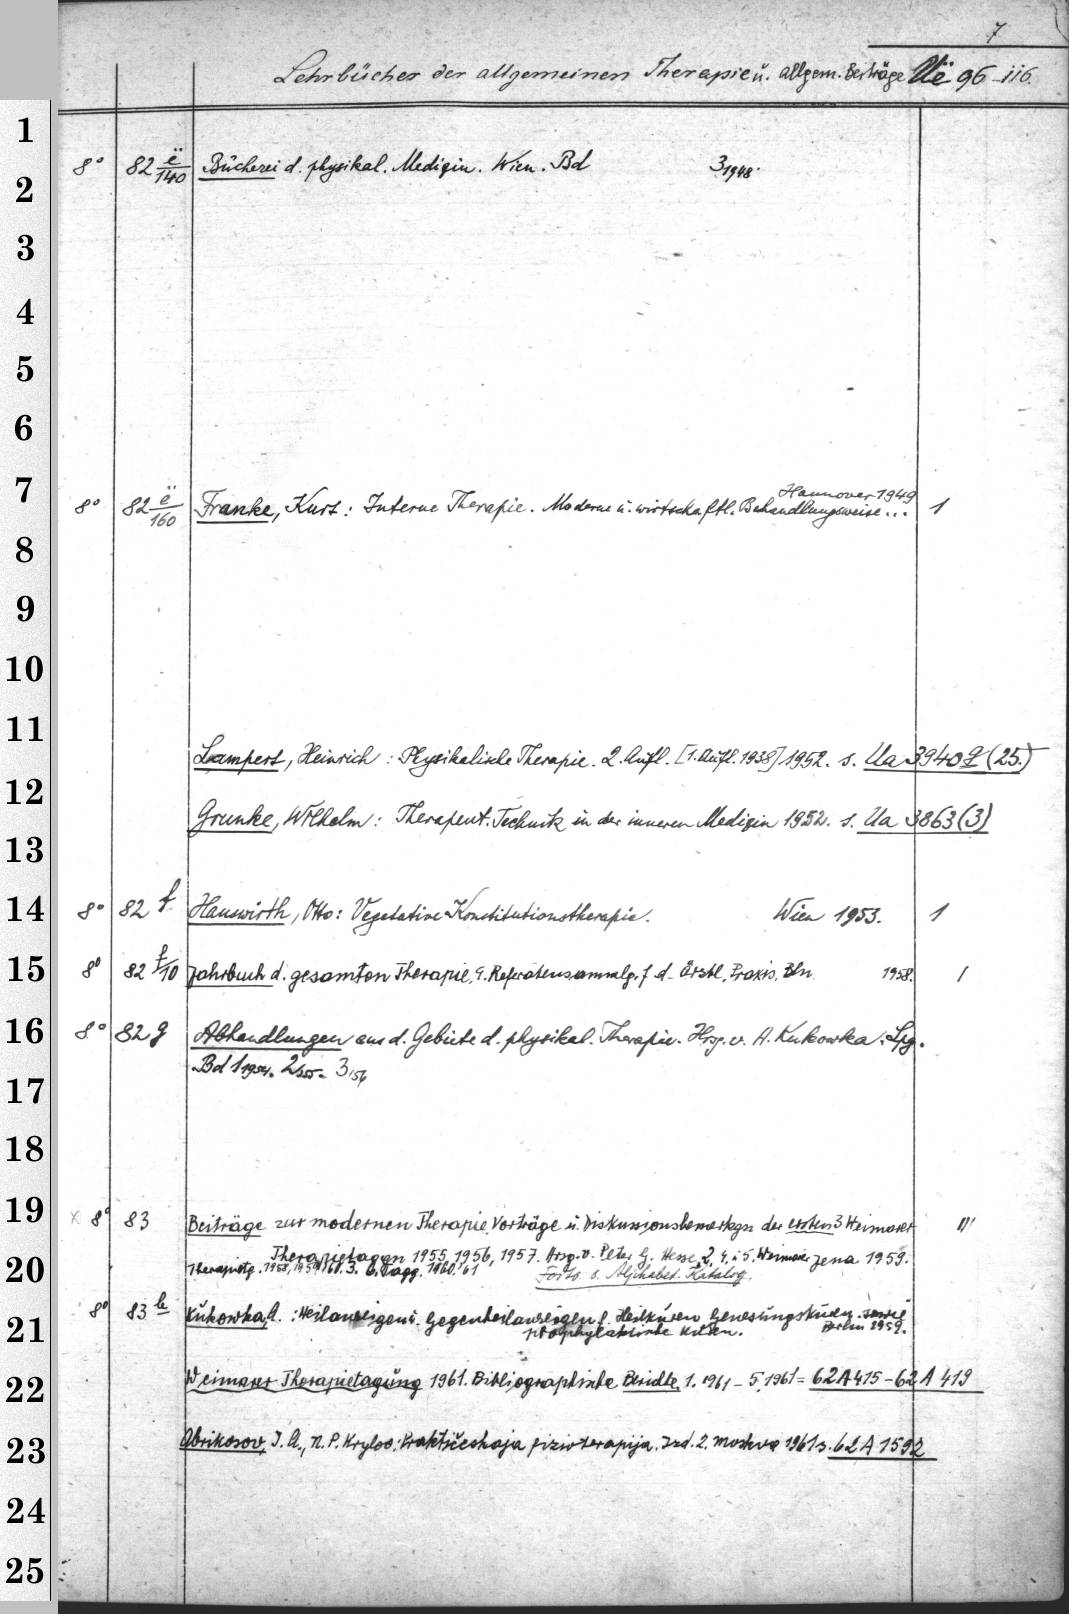 7
Lehrbücher der allgemeinen Therapie u. allgem. Beiträge Uë 96-116.
1
8° 82 ë/140 Bücherei d. physikal. Medizin. Wien. Bd 3 1948.
2
3
4
5
6
Hannover 1949
7
8° 82 ë/160 Franke, Kurt: Interne Therapie. Moderne u. wirtschaftl. Behandlungsweise... 1
8
9
10
11
Lampert, Heinrich: Physikalische Therapie. 2. Aufl. [1. Aufl. 1938] 1952. s. Ua 3940 g (25.)
12
Grunke, Wilhelm: Therapeut. Technik in der inneren Medizin 1952. s. Ua 3863 (3)
13
14
8° 82 f Hauswirth, Otto: Vegetative Konstitutionstherapie. Wien 1953. 1
15
8° 82 f/10 Jahrbuch d. gesamten Therapie. f. d. Ärztl. Praxis. Bln 1958. 1
16
8° 82 g Abhandlungen aus d. Gebiete d. physikal. Therapie. Hrsg. v. A. Kukowka. Lpg.
Bd 1 1954. 2 /55. 3 /56
17
18
19
x 8° 83 Beiträge zur modernen Therapie. Vorträge u. Diskussionsbemerkgn der ersten 3 Weimarer
Therapietagen 1955, 1956, 1957. Hrsg. v. Peter G. Hesse 2, 4, u. 5. Weimarer Jena 1959.
20
Therapietg. 1958, 1959/60. 3. 6. Tagg. 1960, 61
Forts. s. Alphabet. Katalog.
8° 83 b Kukowka, A.: Heilanzeigen u. Gegenheilanzeigen f. Heilkuren Genesungskuren sowie
21
prophylaktische Kuren. Berlin 1959.
22
Weimarer Therapietagung 1961. Bibliographische Berichte 1. 1961 - 5. 1961 = 62 A 415 - 62 A 419
23
Obrikosov, I. A., N. P. Krylov: Praktičeskaja fizioterapija. Izd. 2. Moskva 1961 s. 62 A 1592
24
25